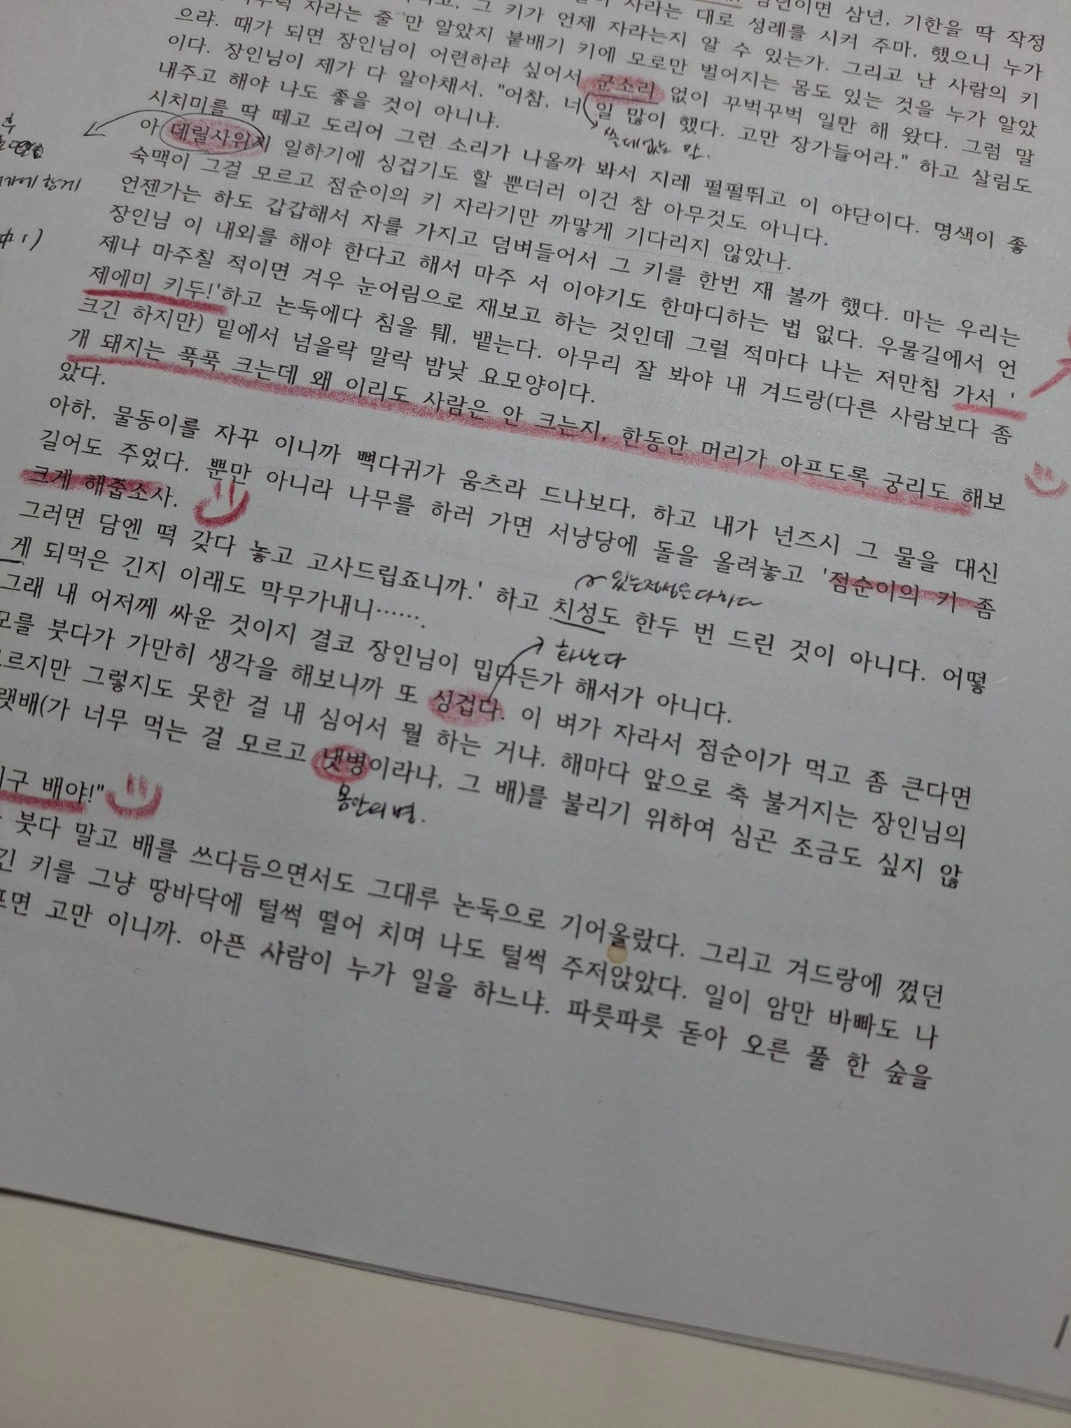 삼년이면 삼년, 기한을 딱 작정
자라는 대로 성례를 시켜 주마, 했으니 누가
그 키가 언제 자라는지 알 수 있는가. 그리고 난 사람의 키
자라는 줄 만 알았지 붙배기 키에 모로만 벌어지는 몸도 있는 것을 누가 알았
으랴. 때가 되면 장인님이 어련하랴 싶어서 군소리 없이 꾸벅꾸벅 일만 해 왔다. 그럼 말
이다. 장인님이 제가 다 알아채서, "어참, 너 일 많이 했다. 고만 장가들어라." 하고 살림도
쓸데없는 말.
내주고 해야 나도 좋을 것이 아니냐.
시치미를 딱 떼고 도리어 그런 소리가 나올까 봐서 지레 펄펄뛰고 이 야단이다. 명색이 좋
아 데릴사위지 일하기에 싱겁기도 할 뿐더러 이건 참 아무것도 아니다.
숙맥이 그걸 모르고 점순이의 키 자라기만 까맣게 기다리지 않았나.
언젠가는 하도 갑갑해서 자를 가지고 덤벼들어서 그 키를 한번 재 볼까 했다. 마는 우리는
장인님 이 내외를 해야 한다고 해서 마주 서 이야기도 한마디하는 법 없다. 우물길에서 언
제나 마주칠 적이면 겨우 눈어림으로 재보고 하는 것인데 그럴 적마다 나는 저만침 가서 '
제에미 키두!'하고 논둑에다 침을 퉤, 뱉는다. 아무리 잘 봐야 내 겨드랑(다른 사람보다 좀
크긴 하지만) 밑에서 넘을락 말락 밤낮 요모양이다.
개 돼지는 푹푹 크는데 왜 이리도 사람은 안 크는지, 한동안 머리가 아프도록 궁리도 해보
았다.
아하, 물동이를 자꾸 이니까 뼉다귀가 움츠라 드나보다, 하고 내가 넌즈시 그 물을 대신
길어도 주었다. 뿐만 아니라 나무를 하러 가면 서낭당에 돌을 올려놓고 '점순이의 키 좀
크게 해줍소사.
있는정성은다하다
그러면 담엔 떡 갖다 놓고 고사드립죠니까.' 하고 치성도 한두 번 드린 것이 아니다. 어떻
게 되먹은 긴지 이래도 막무가내니…….
그래 내 어저께 싸운 것이지 결코 장인님이 밉다든가 해서가 아니다.
모를 붓다가 가만히 생각을 해보니까 또 싱겁다. 이 벼가 자라서 점순이가 먹고 좀 큰다면
모르지만 그렇지도 못한 걸 내 심어서 뭘 하는 거냐. 해마다 앞으로 축 불거지는 장인님의
랫배(가 너무 먹는 걸 모르고 냇병이라나, 그 배)를 불리기 위하여 심곤 조금도 싶지 않
몸안의 병.
이구 배야!"
붓다 말고 배를 쓰다듬으면서도 그대루 논둑으로 기어올랐다. 그리고 겨드랑에 꼈던
긴 키를 그냥 땅바닥에 털썩 떨어 치며 나도 털썩 주저앉았다. 일이 암만 바빠도 나
프면 고만 이니까. 아픈 사람이 누가 일을 하느냐. 파릇파릇 돋아 오른 풀 한 숲을